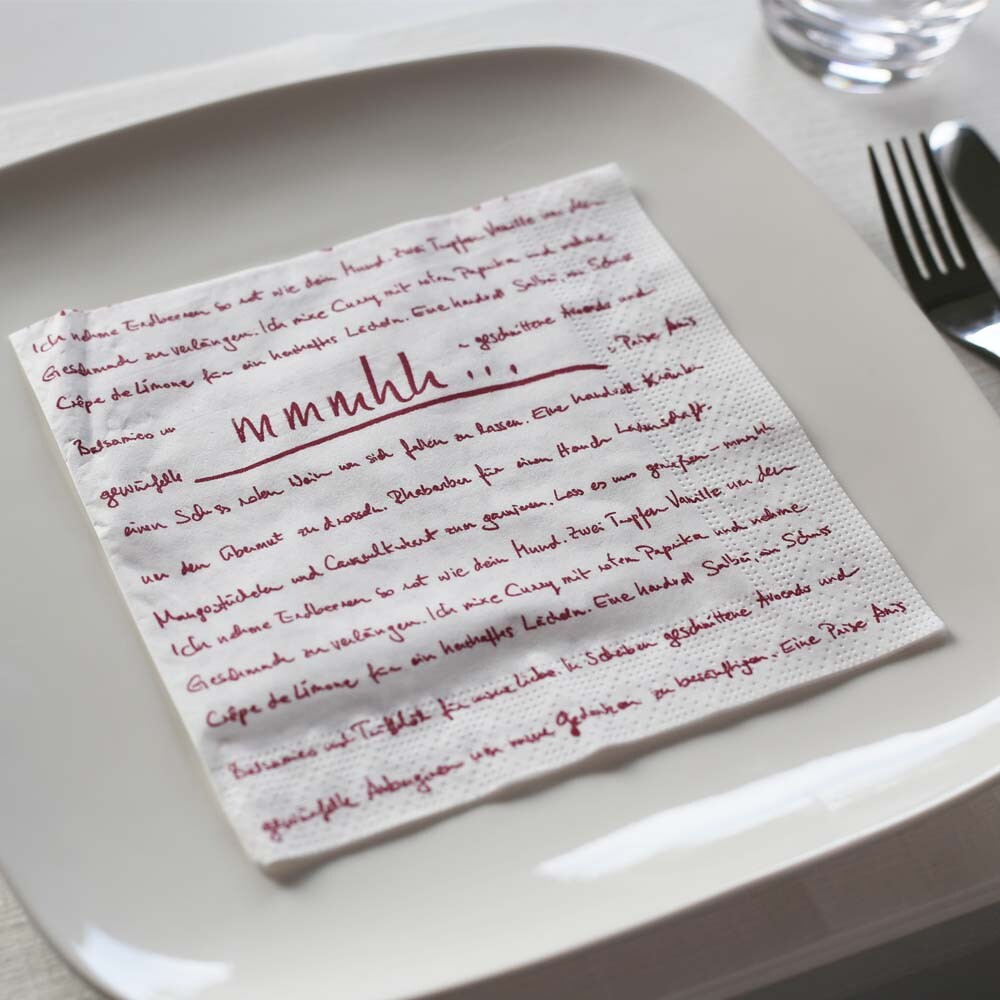 Ich nehme Erdbeeren so rot wie dein Mund. Zwei Tupfen Vanille um den
Geschmack zu verlängern. Ich mixe Curry mit rotem Paprika und nehme
Crêpe de Limone für ein herzhaftes Lächeln. Eine handvoll Salbei, ein Schuss
Balsamico un geschnittene Avocado und
mmmhh...
gewürfelte Prise Anis
einen Schuss roten Wein um sich fallen zu lassen. Eine handvoll Kräuter
um den Übermut zu drosseln. Rhabarber für einen Hauch Leidenschaft.
Mangostückchen und zum garnieren. Lass es uns genießen - mmmhh
Ich nehme Erdbeeren so rot wie dein Mund. Zwei Tupfen Vanille um den
Geschmack zu verlängern. Ich mixe Curry mit rotem Paprika und nehme
Crêpe de Limone für ein herzhaftes Lächeln. Eine handvoll Salbei, ein Schuss
Balsamico und für meine Liebe. In Scheiben geschnittene Avocado und
gewürfelte Auberginen um meine Gedanken zu besänftigen. Eine Prise Anis